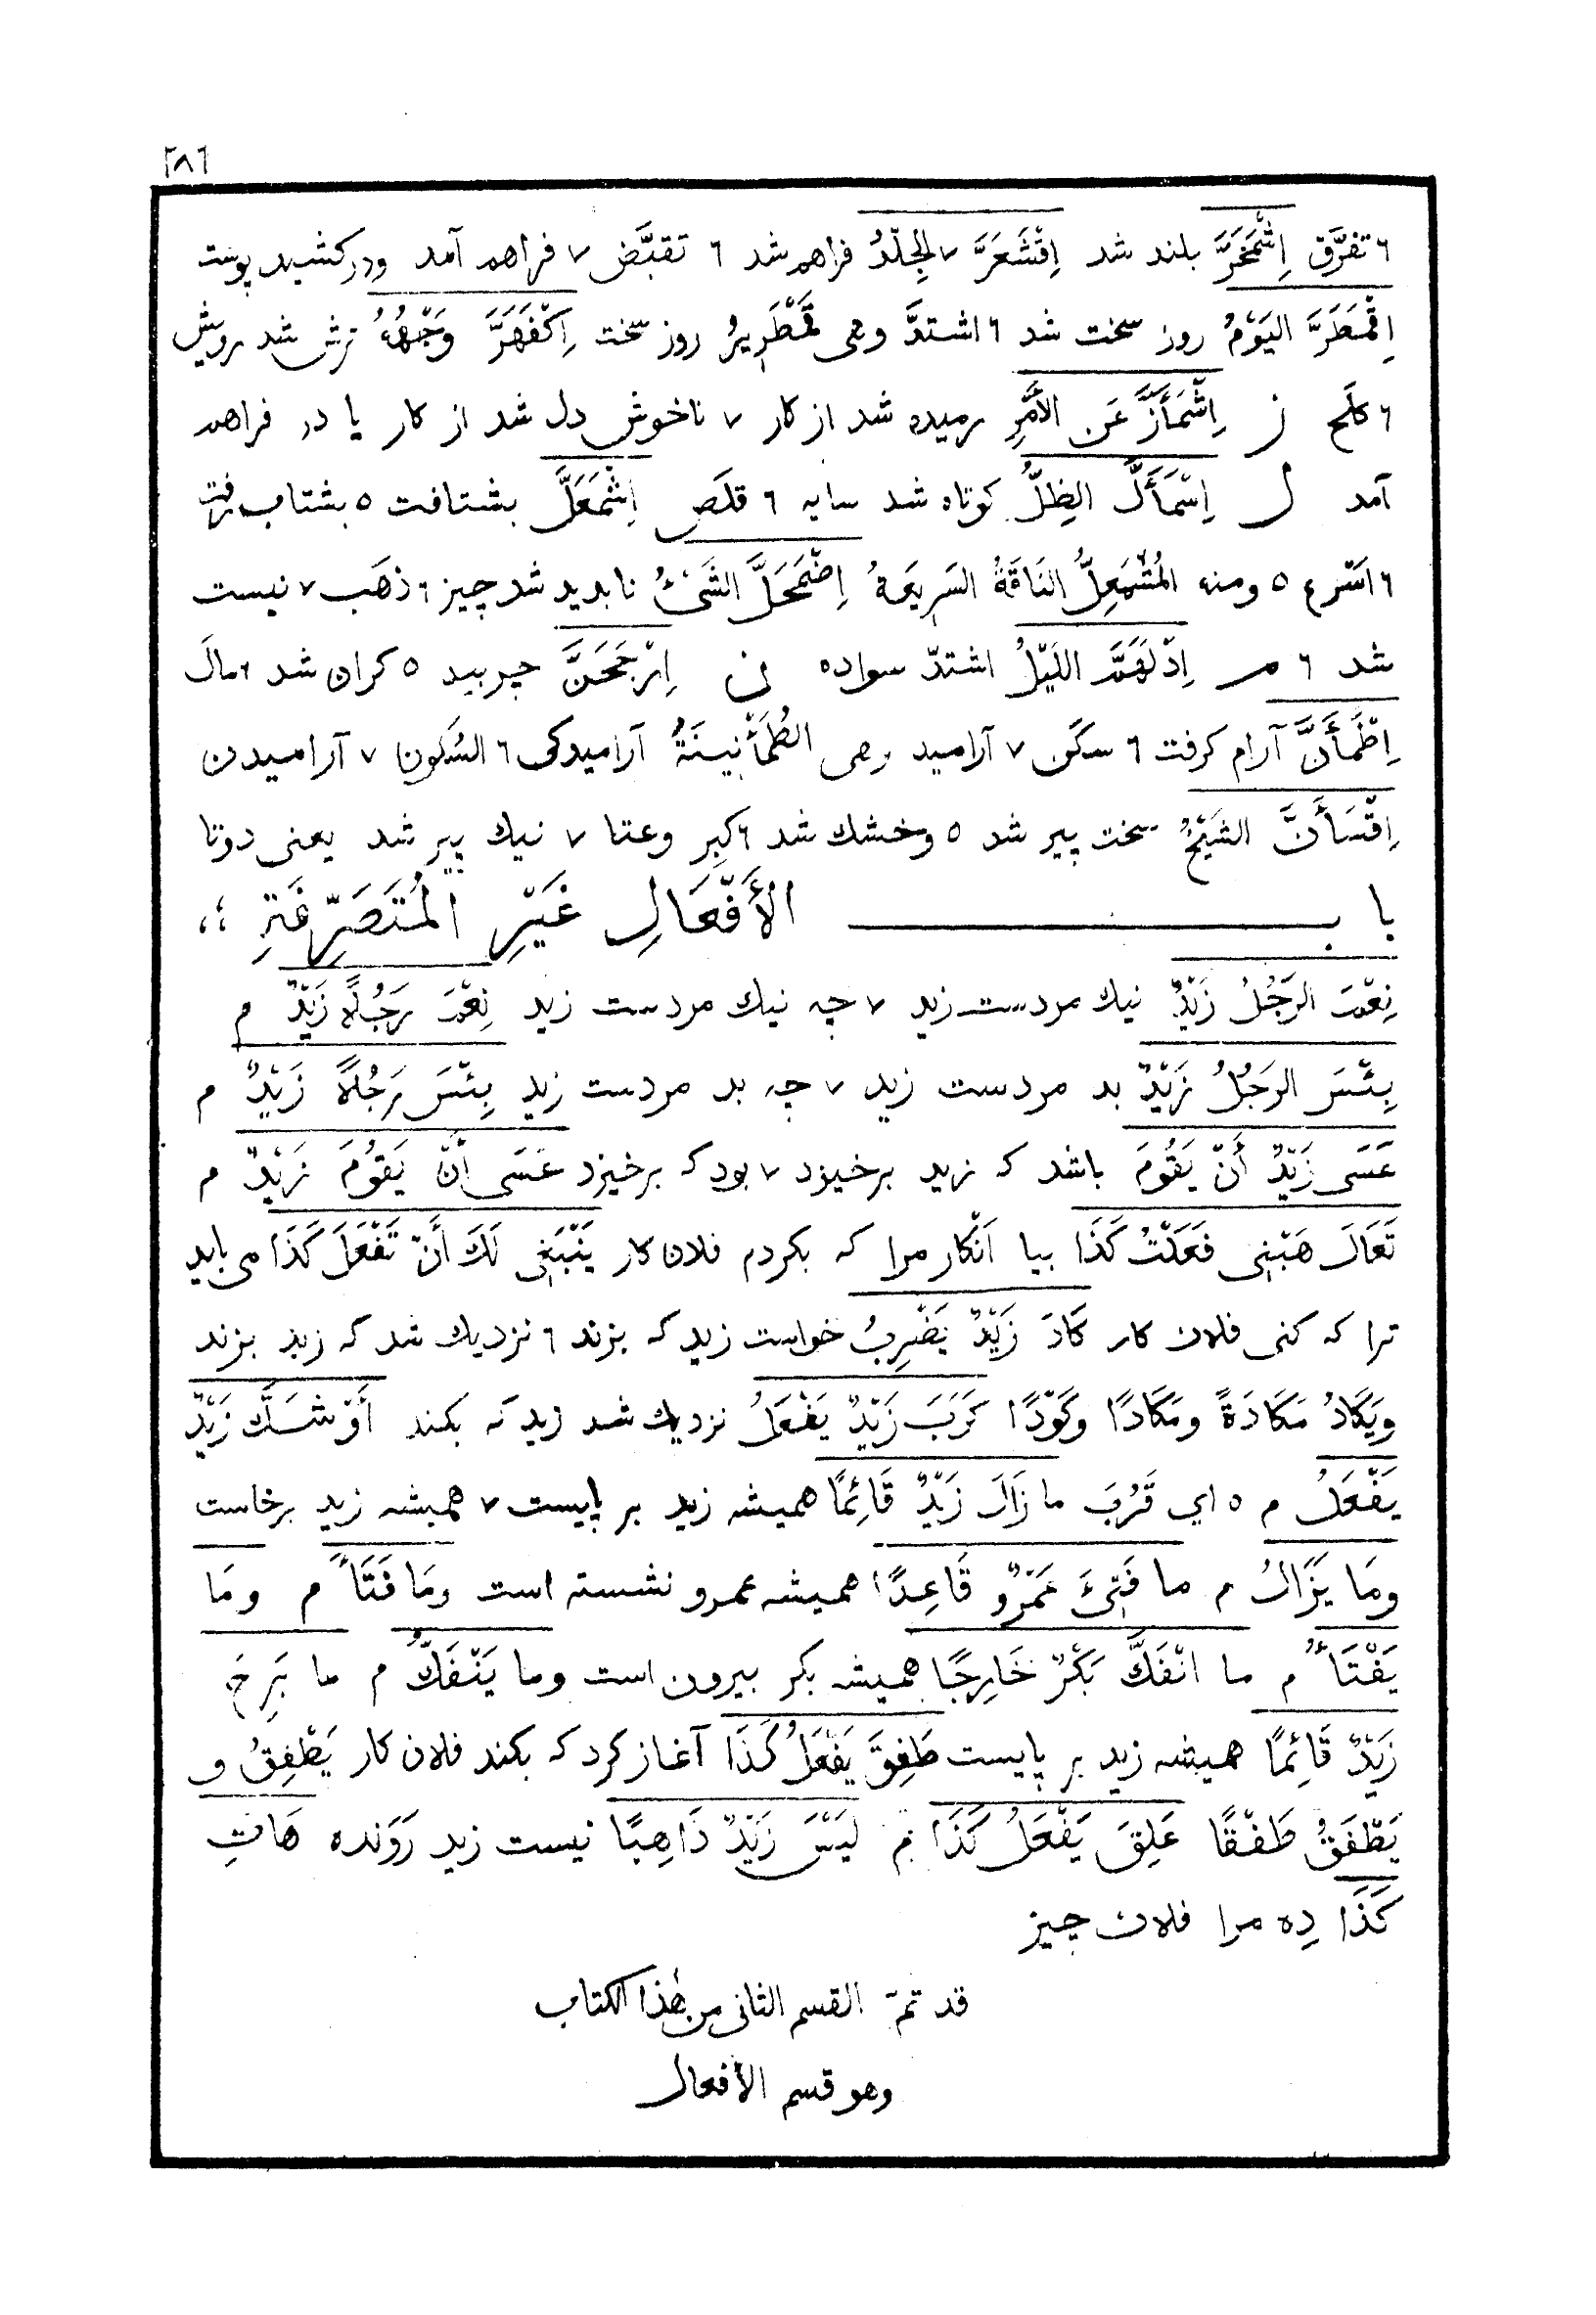 ٢٨٦
٦ تفرَّق اِشْمَخَرَّ بلند شد اِقْشَعَرَّ ٧ الجِلْدُ فراهم شد ٦ تقبَّض ٧ فراهم آمد ودر كشيد پوست
اِقْمَطَرَّ اليَوْمُ روز سخت شد ٦ اشتدَّ وهى قَمْطَرِيرُ روز سخت اِكْفَهَرَّ وَجْهُهُ ترش شد رويش
٦ كلَح ز اِشْمَأَزَّ عَن الأَمْرِ رميده شد از كار ٧ ناخوش دل شد از كار يا در فراهم
آمد ل اِسْمَأَلَّ الظِلُّ كوتاه شد سايه ٦ قلَص اِشْمَعَلَّ بشتافت ٥ بشتاب رفت
٦ اَسْرع ٥ ومنه المُشْمَعِلُّ النَاقَةُ السَرِيعَةُ اِضْمَحَلَّ الشَىْءُ نابديد شد چيز ٦ ذهَب ٧ نيست
شد ٦ م اِدْلَهَمَّ اللَيْلُ اشتدّ سواده ن اِرْجَحَنَّ چربيد ٥ كران شد ٦ مالَ
اِطْمَأَنَّ آرام كرفت ٦ سكَن ٧ آراميد وهى الطُمَأْنِينَةُ آراميدكى ٦ السُكون ٧ آراميدن
اِقْسَأَنَّ الشَيْخُ سخت پير شد ٥ وخشك شد ٦ كبِر وعتا ٧ نيك پير شد يعنى دوتا
باب الأَفْعَالِ غَيْرِ المُتَصَرِّفَةِ
نِعْمَ الرَجُلُ زَيْدٌ نيك مردست زيد ٧ چه نيك مردست زيد نِعْمَ رَجُلًا زَيْدٌ م
بِئْسَ الرَجُلُ زَيْدٌ بد مردست زيد ٧ چه بد مردست زيد بِئْسَ رَجُلًا زَيْدٌ م
عَسَى زَيْدٌ أَنْ يَقُومَ باشد كه زيد برخيزد ٧ بود كه برخيزد عَسَى أَنْ يَقُومَ زَيْدٌ م
تَعَالَ هَبْنِى فَعَلْتُ كَذَا بيا اَنْكار مرا كه بكردم فلان كار يَنْبَغِى لَكَ أَنْ تَفْعَلَ كَذَا مى بايد
ترا كه كنى فلان كار كَادَ زَيْدٌ يَضْرِبُ خواست زيد كه بزند ٦ نزديك شد كه زيد بزند
وَيَكَادُ مَكَادَةً ومَكَادًا وكَوْدًا كَرَبَ زَيْدٌ يَفْعَلُ نزديك شد زيد كه بكند أَوْشَكَ زَيْدٌ
يَفْعَلُ م ٥ اي قَرُبَ ما زَالَ زَيْدٌ قَائِمًا هميشه زيد بر پايست ٧ هميشه زيد برخاست
ومَا يَزَالُ م ما فَتِئَ عَمْرٌو قَاعِدًا هميشه عمرو نشسته است ومَا فَتَأَ م ومَا
يَفْتَأُ م ما انْفَكَّ بَكْرٌ خَارِجًا هميشه بكر بيرون است وما يَنْفَكُّ م ما بَرِحَ
زَيْدٌ قَائِمًا هميشه زيد بر پايست طَفِقَ يَفْعَلُ كَذَا آغاز كرد كه بكند فلان كار يَطْفِقُ و
يَطْفَقُ طَفْقًا عَلِقَ يَفْعَلُ كَذَا م لَيْسَ زَيْدٌ ذَاهِبًا نيست زيد رَوَنده هَاتِ
كَذَا دِه مرا فلان چيز
قد تمّ القسم الثانى من هٰذا الكتاب
وهو قسم الأفعال